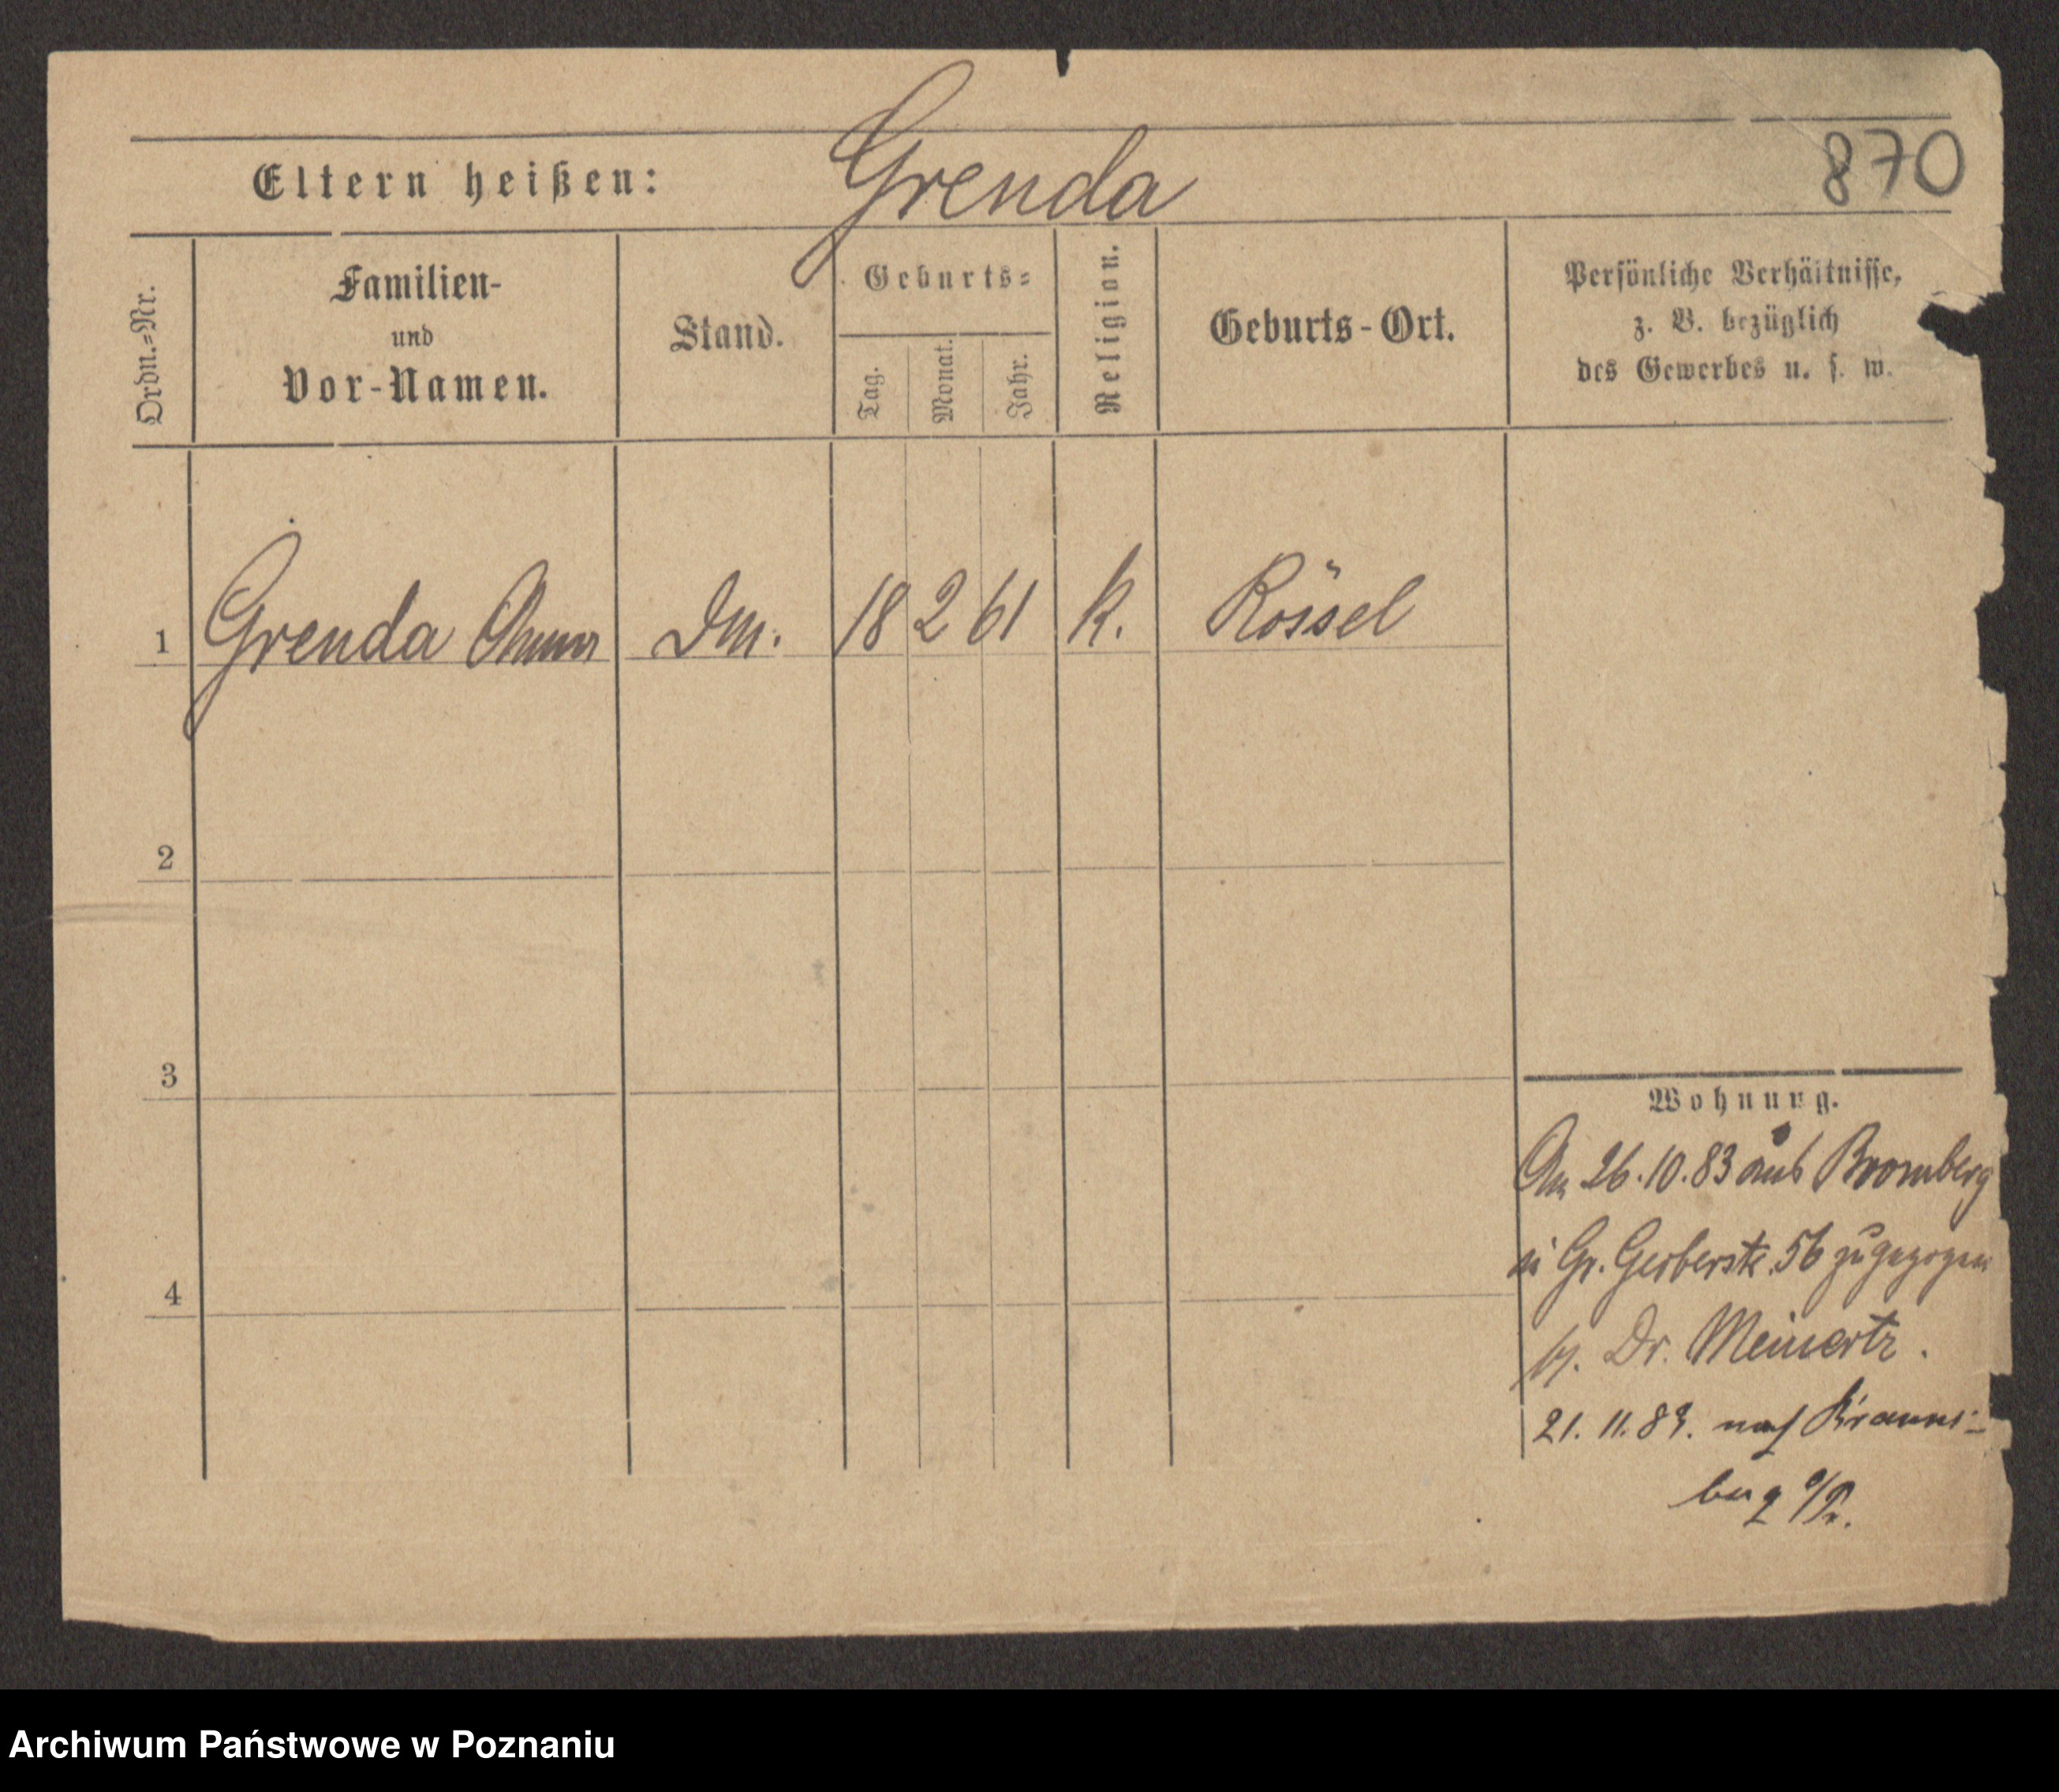 870
Eltern heißen: Grenda
Ordn.-Nr.
Familien-
und
Vor-Namen.
Stand.
Geburts-
Tag.
Monat.
Jahr.
Religion.
Geburts-Ort.
Persönliche Verhältnisse,
z. B. bezüglich
des Gewerbes u. s. w.
1 Grenda Anna Dm. 18 2 61 k. Rössel
2
3
4
Wohnung.
Am 26.10.83 aus Bromberg
in Gr. Gerberstr. 56 zugezogen
b. Dr. Meinertz.
21. 11. 89. nach Brauns-
berg o/Pr.
Archiwum Państwowe w Poznaniu